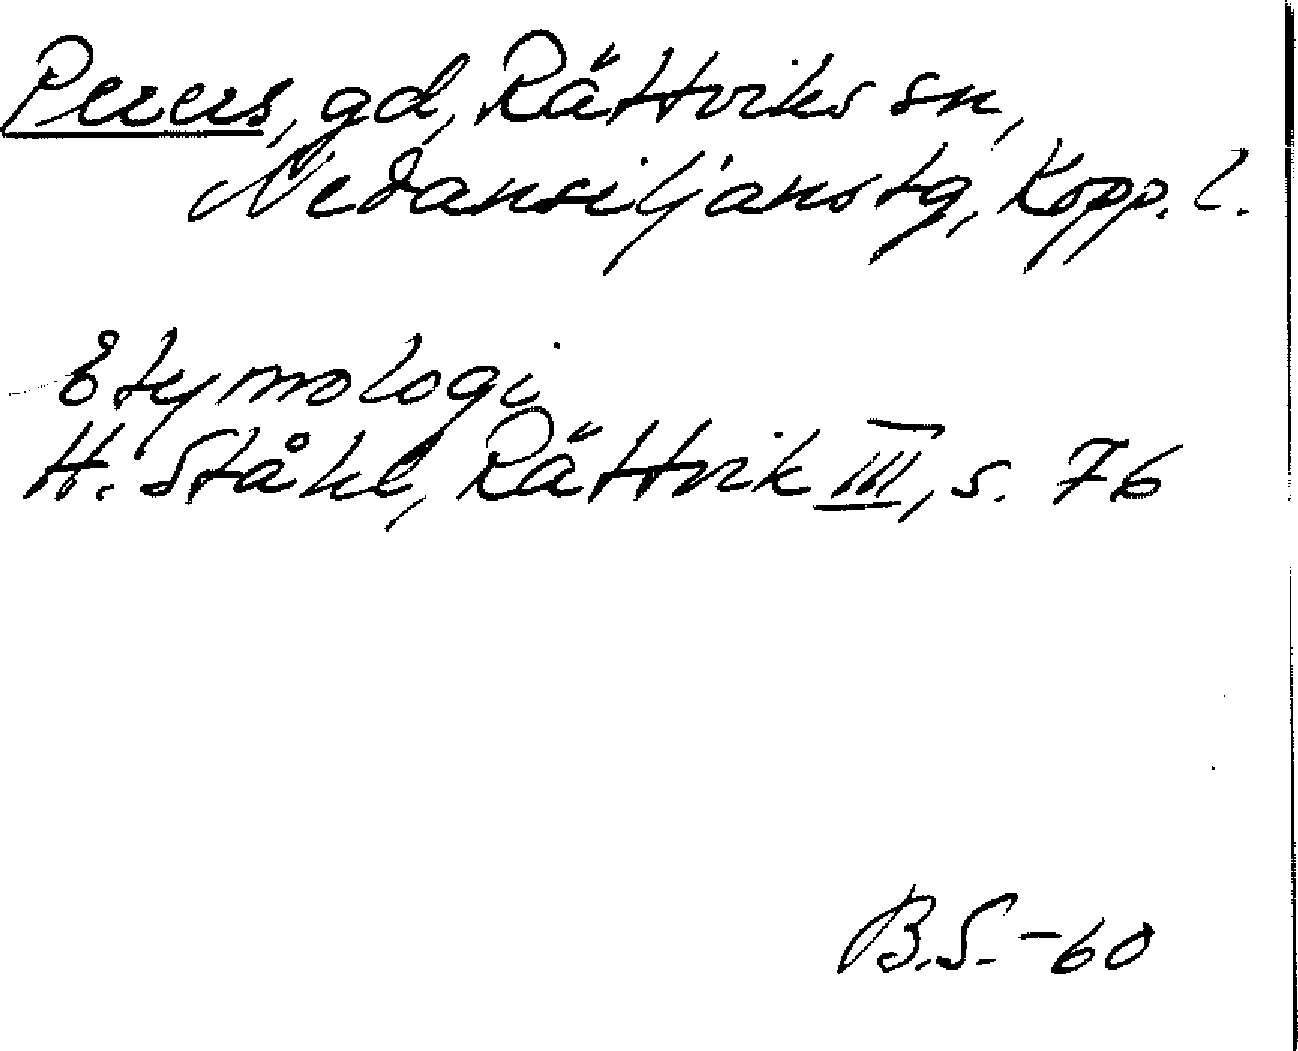 Perers, gd, Rättviks sn,
Nedansiljans tg, Kopp. l.
Etymologi
H. Ståhl, Rättvik III, s. 76
B.S. -60